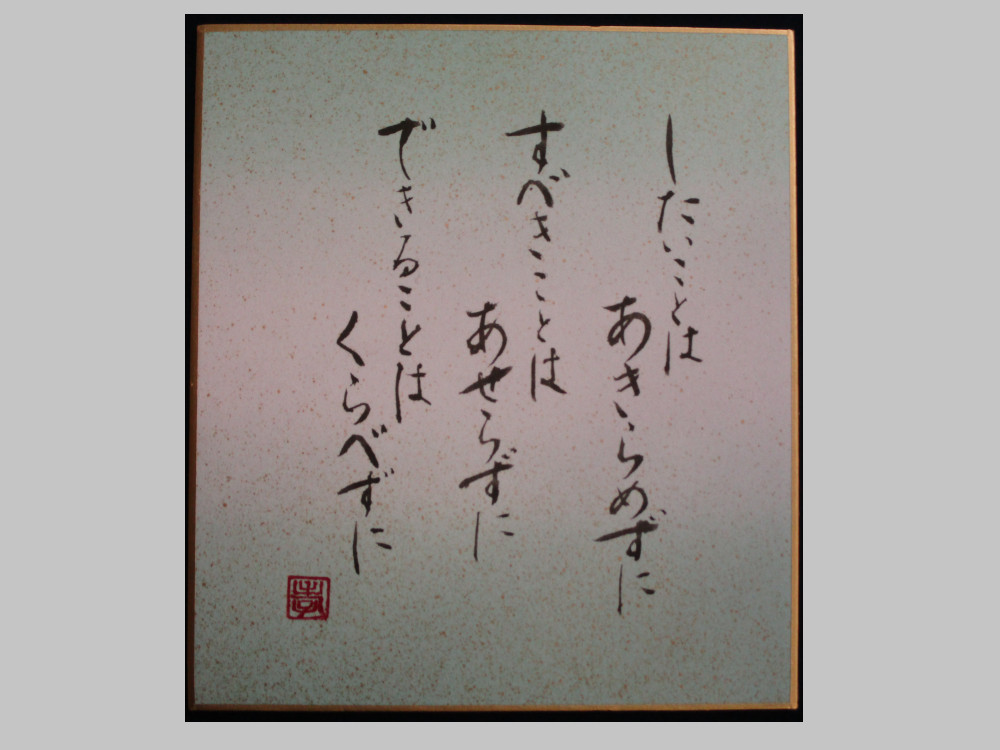 したいことは
あきらめずに
すべきことは
あせらずに
できることは
くらべずに